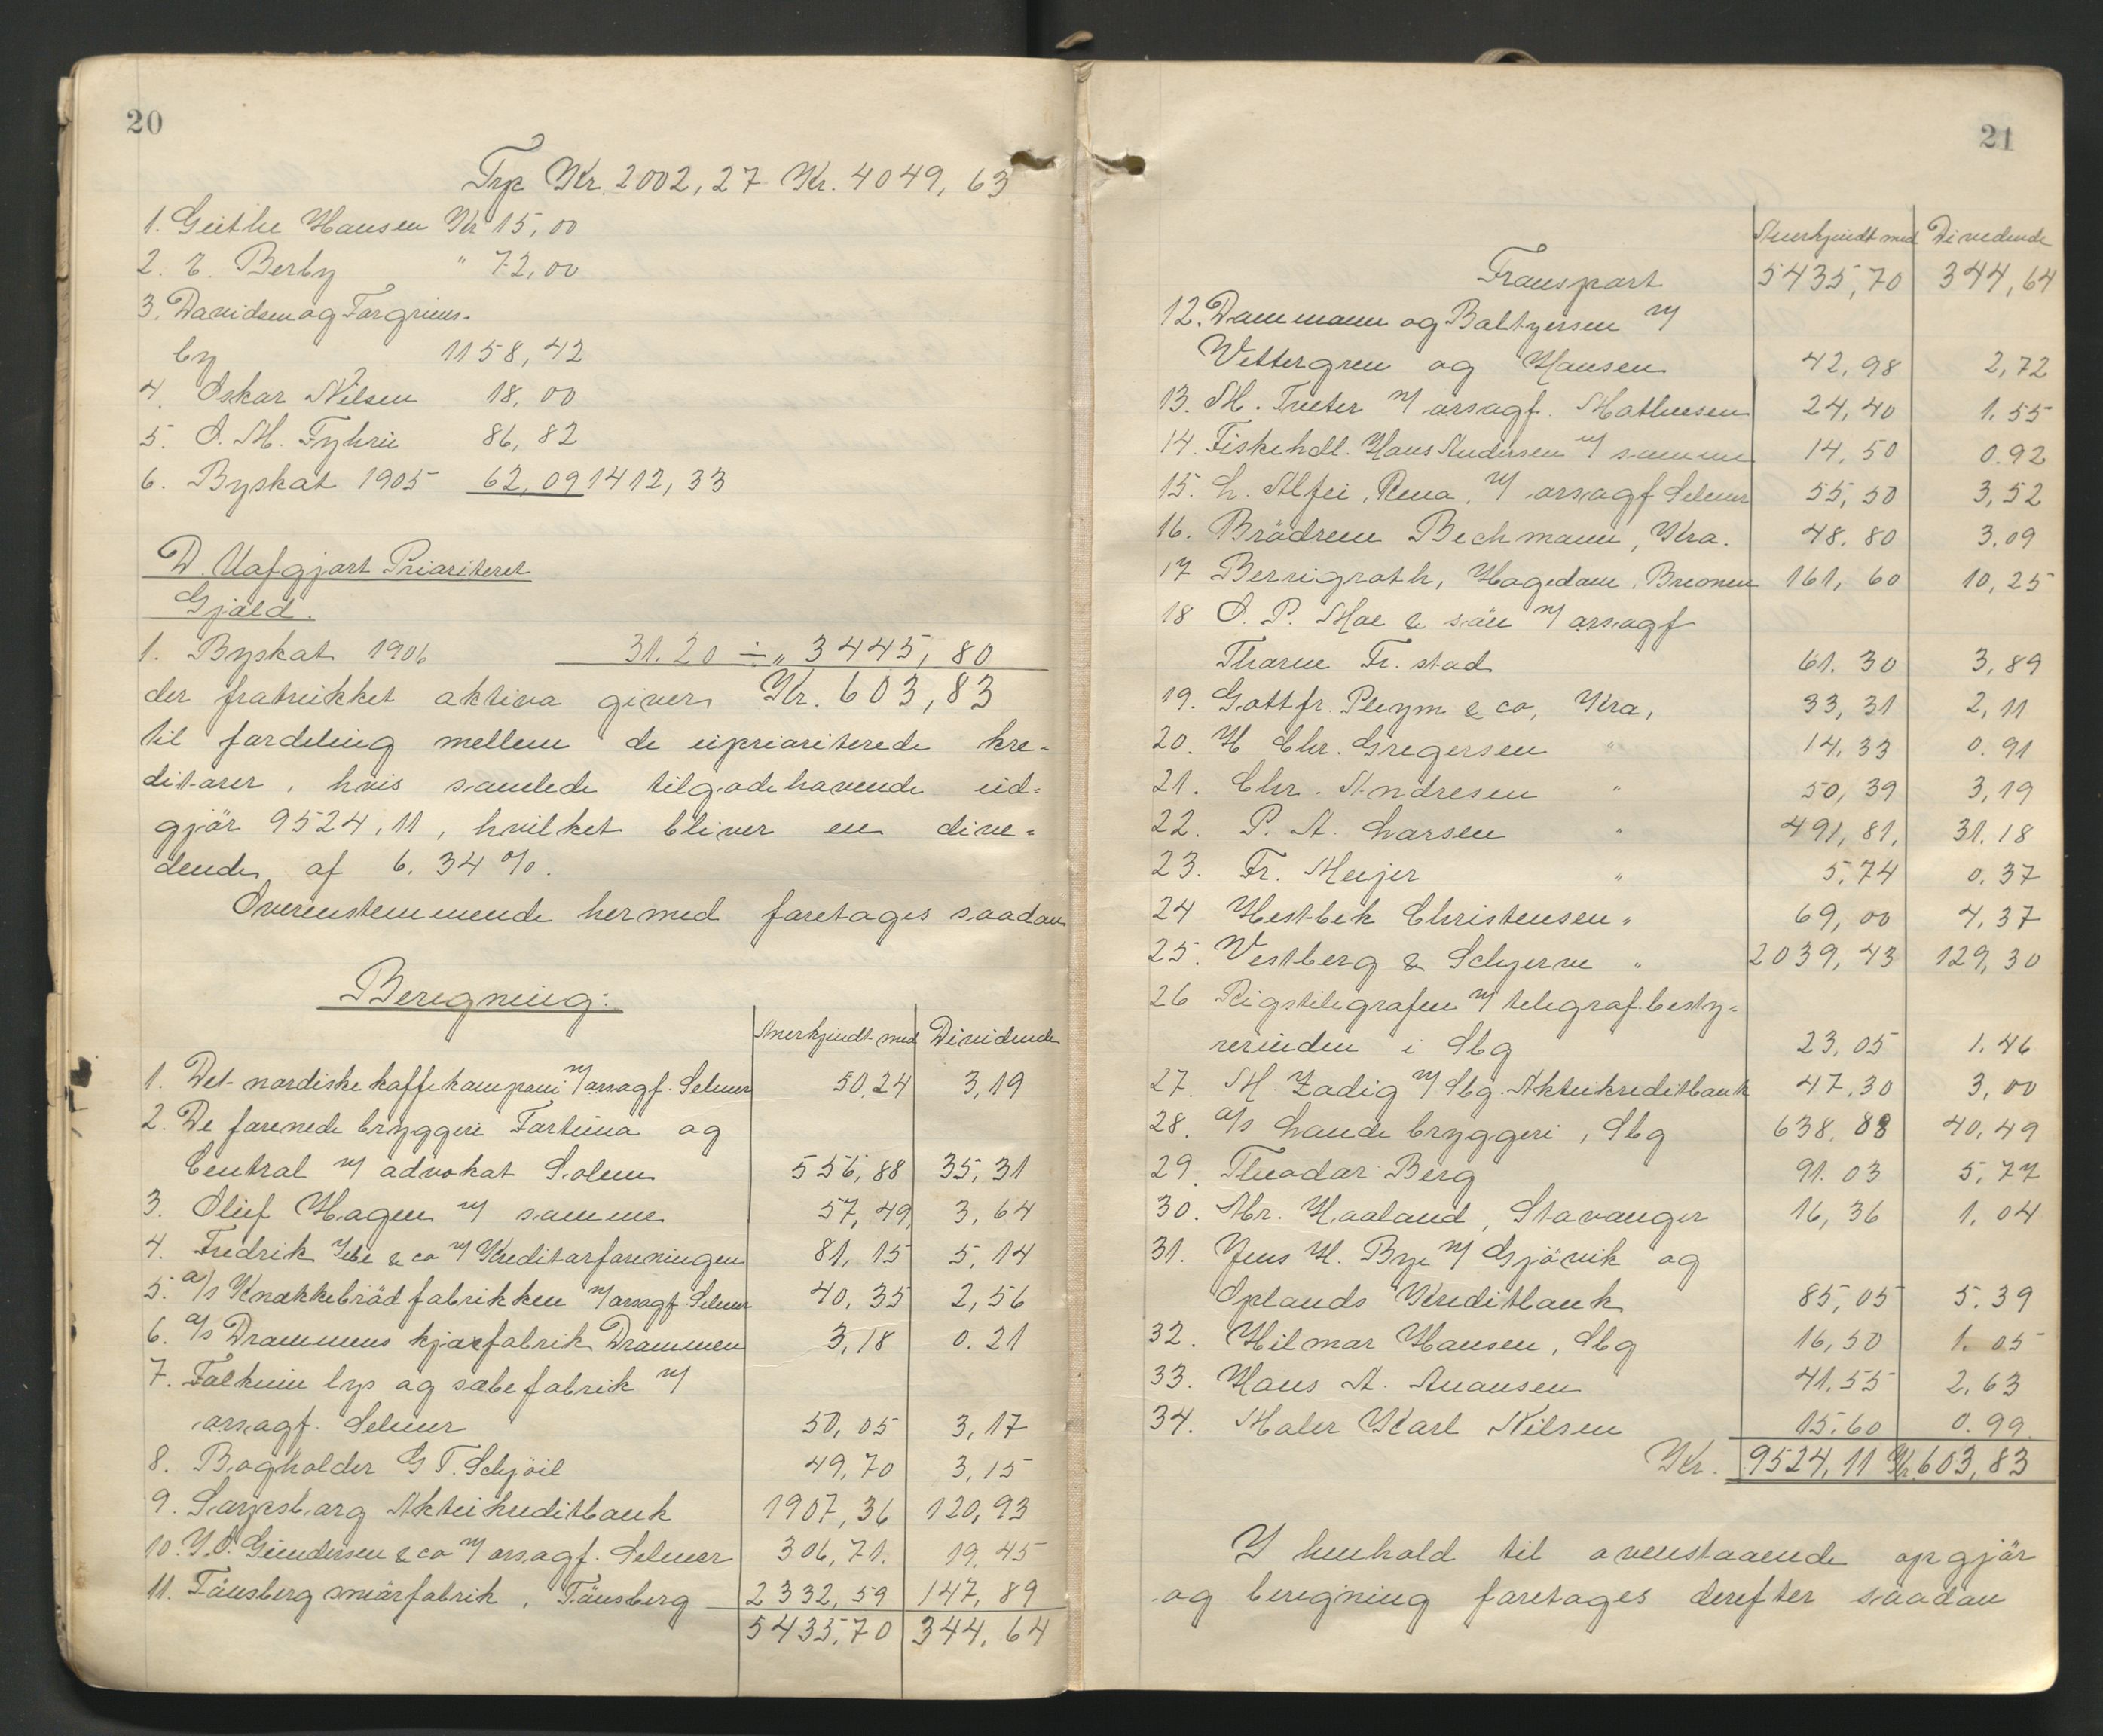 20
Trp Kr. 2002,27 Kr. 4049,63
1. Guthe Hansen Kr 15,00
2. E. Berby " 72,00
3. Davidsen og Torgrims-
by 1158,42
4. Oskar Nilsen 18,00
5. O. M. Fyhrie 86,82
6. Byskat 1905 62,09 1412,33
D. Uafgjort Prioriteret
Gjæld.
1. Byskat 1906 31.20 ÷ " 3445,80
der fratrukket aktiva giver Kr. 603,83
til fordeling mellem de uprioriterede kre-
ditorer, hvis samlede tilgodehavende ud-
gjör 9524,11, hvilket bliver en dive-
dende af 6.34 %.
Overenstemmende hermed foretages saadan
Beregning:
Anerkjendt med Dividende
1. Det nordiske kaffekompani v/ orsagf. Selmer 50,24 3,19
2. De forenede bryggeri Fortuna og
Central v/ advokat Solem 556,88 35,31
3. Oluf Hagen v/ samme 57,49 3,64
4. Fredrik Ibe & co v/ Kreditorforeningen 81,15 5,14
5. a/s Knækkebröd fabrikken v/ orsagf. Selmer 40,35 2,56
6. a/s Drammens kjæxfabrik Drammen 3,18 0.21
7. Falkum lys og sæbefabrik v/
orsagf. Selmer 50,05 3,17
8. Bogholder G T. Schjöil 49,70 3,15
9. Sarpsborg Aktiekreditbank 1907,36 120,93
10. J. O. Gundersen & co v/ orsagf. Selmer 306,71. 19,45
11. Tönsberg smörfabrik, Tönsberg 2332,59 147,89
5435,70 344,64
21
Anerkjendt med Divedende
Transport 5435,70 344,64
12. Dammann og Baltzersen v/
Wettergren og Hansen 42,98 2,72
13. M. Tveter v/ orsagf. Mathiesen 24,40 1.55
14. Fiskehdl. Hans Andersen v/ samme 14,50 0.92
15. L. Alfei, Rena, v/ orsagf Selmer 55,50 3,52
16. Brödrene Bechmann, Kra. 48.80 3.09
17 Berrigroth, Hagedam, Bremen 161,60 10,25
18 O. P. Moe & sön v/ orsagf
Thorne Fr. stad 61.30 3,89
19. Gottfr. Pleym & co, Kra, 33,31 2,11
20. H Chr. Gregersen " 14,33 0.91
21. Chr. Andresen " 50,39 3,19
22. P. A. Larsen " 491,81, 31.18
23. Fr. Meijer " 5,74 0.37
24 Hestbek Christensen " 69,00 4,37
25. Vestberg & Schjerve " 2039,43 129,30
26 Rigstelegrafen v/ telegrafbesty-
rerinden i Sbg 23,05 1.46
27. M. Zadig v/ Sbg. Aktiekreditbank 47,30 3,00
28. a/s Lande bryggeri, Sbg 638,88 40,49
29. Theodor Berg 91.03 5,77
30. Mr. Haaland, Stavanger 16,36 1,04
31. Jens H. Bye v/ Gjövik og
Oplands Kreditbank 85,05 5.39
32. Hilmar Hansen, Sbg 16,50 1.05
33. Hans A. Anansen 41.55 2,63
34. Maler Karl Nilsen 15.60 0.99
Kr. 9524,11 Kr 603,83
I henhold til ovenstaaende opgjör
og beregning foretages derefter saadan